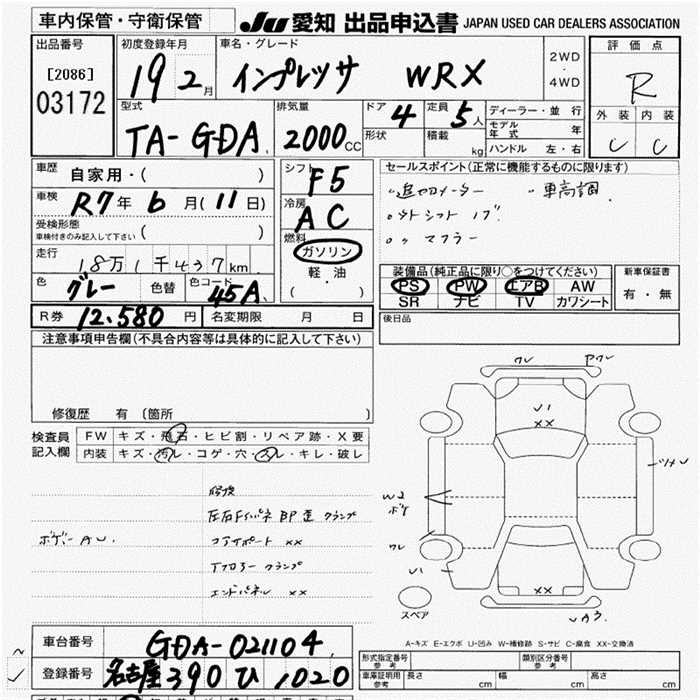 車内保管・守衛保管
JU 愛知 出品申込書 JAPAN USED CAR DEALERS ASSOCIATION
出品番号
[2086]
03172
初度登録年月
19 2月
車名・グレード
インプレッサ WRX
2WD
・
4WD
評価点
R
外装 内装
C C
型式
TA-GDA
排気量
2000cc
ドア 4
形状
定員 5人
積載 kg
ディーラー・並行
モデル年式 年
ハンドル 左・右
車歴 自家用・( )
車検 R7年 6月(11日)
受検形態
車検付きのみ記入して下さい ( )
走行 18万1千437km
色 グレー 色替 色コード 45A
R券 12,580円 名変期限 月 日
シフト F5
冷房 AC
燃料
ガソリン
軽油
( )
セールスポイント(正常に機能するものに限ります)
〃追加メーター 〃車高調
マフラー
装備品(純正品に限り○をつけてください)
PS PW エアB AW
SR ナビ TV カワシート
新車保証書
有・無
後日品
注意事項申告欄(不具合内容等は具体的に記入して下さい)
修復歴 有 〔箇所 〕
検査員記入欄
FW キズ・飛石・ヒビ割・リペア跡・X要
内装 キズ・汚レ・コゲ・穴・スレ・キレ・破レ
修復
ボデーAU.
エンドパネル ××
ワレ
V1
××
W2
ボケ
ワレ
V1
××
スペア
A-キズ E-エクボ U-凹み W-補修跡 S-サビ C-腐食 XX-交換済
車台番号 GDA-021104
登録番号 名古屋 390 ひ 1020
形式指定番号
参考
類別区分番号
参考
車庫証明用
参考
長さ cm 幅 cm 高さ cm